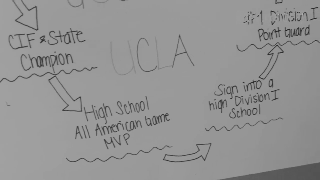 CIF & State
Champion
UCLA
High School
All American Game
MVP
Sign into a
high Division I
School
#1 Division I
Point Guard